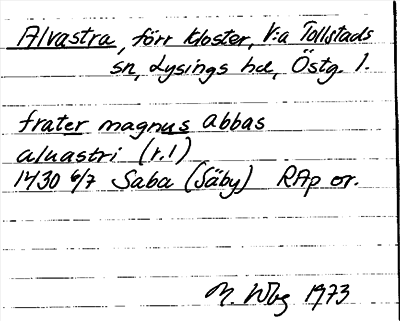 Alvastra, förr kloster, V:a Tollstads
sn, Lysings hd, Östg. l.
frater magnus abbas
aluastri (r.1)
1430 6/7 Saba (Säby) RAp or.
M. Wbg 1973